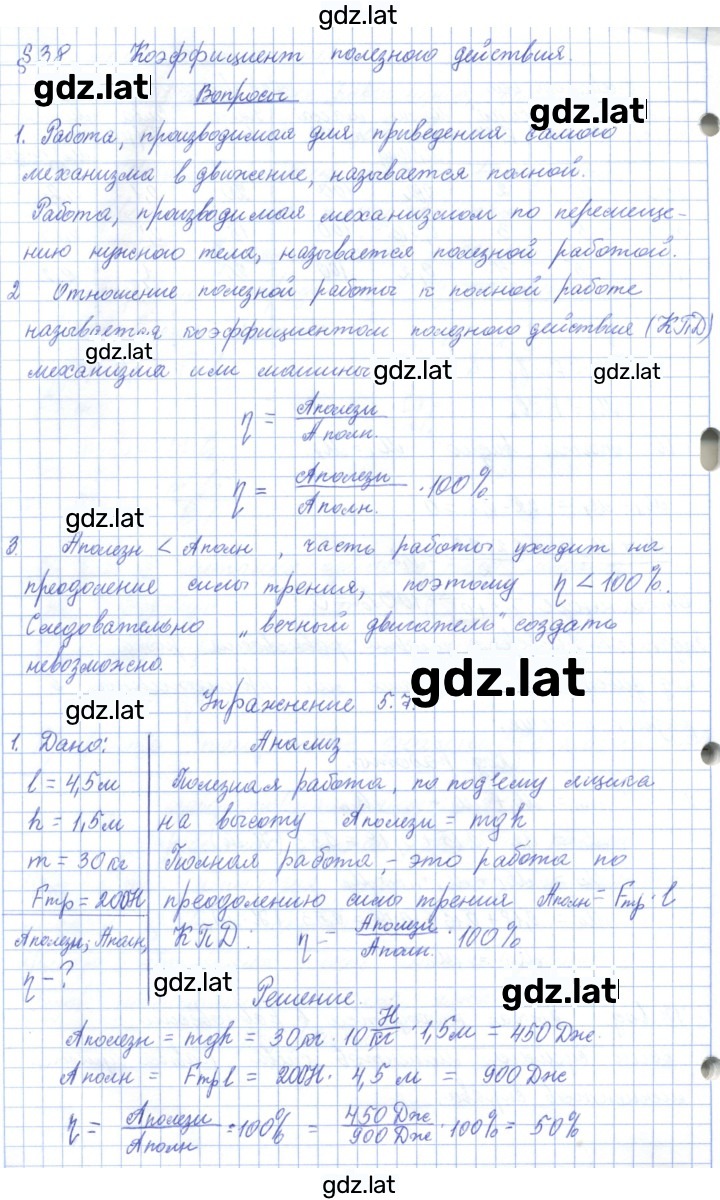 gdz.lat
§ 38 Коэффициент полезного действия.
gdz.lat
Вопросы
gdz.lat
1. Работа, производимая для приведения самого
механизма в движение, называется полной.
Работа, производимая механизмом по перемеще-
нию нужного тела, называется полезной работой.
2 Отношение полезной работы к полной работе
называется коэффициентом полезного действия (КПД)
gdz.lat
механизма или машины
gdz.lat
gdz.lat
η = Аполезн / Аполн.
η = Аполезн / Аполн. · 100%
gdz.lat
3. Аполезн < Аполн, часть работы уходит на
преодоление силы трения, поэтому η < 100%.
Следовательно „вечный двигатель" создать
невозможно.
gdz.lat
gdz.lat
Упражнение 5.7.
1. Дано: Анализ
l = 4,5м Полезная работа, по подъему ящика
h = 1,5м на высоту Аполезн = mgh
m = 30кг Полная работа, - это работа по
Fтр = 200Н преодолению силы трения Аполн = Fтр · l
Аполезн; Аполн; КПД: η = Аполезн / Аполн. · 100%
η - ?
gdz.lat
Решение.
gdz.lat
Аполезн = mgh = 30кг · 10 Н/кг · 1,5м = 450 Дж.
Аполн = Fтрl = 200Н · 4,5 м = 900 Дж
η = Аполезн / Аполн · 100% = 450 Дж / 900 Дж · 100% = 50%
gdz.lat